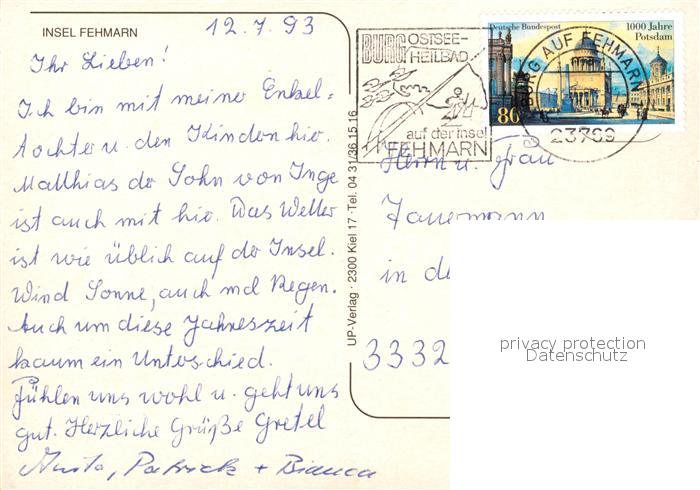 INSEL FEHMARN
12.7.93
Ihr Lieben!
Ich bin mit meiner Enkel=
tochter u. den Kindern hier.
Matthias der Sohn von Inge
ist auch mit hier. Das Wetter
ist wie üblich auf der Insel.
Wind Sonne, auch mal Regen.
Auch um diese Jahreszeit
kaum ein Unterschied.
Fühlen uns wohl u. geht uns
gut. Herzliche Grüße Gretel
Anita, Patrick + Bianca
UP-Verlag · 2300 Kiel 17 · Tel. 04 31/36 15 16
BURG OSTSEE-
HEILBAD
auf der Insel
FEHMARN
Deutsche Bundespost
1000 Jahre
Potsdam
80
BURG AUF FEHMARN
23769
Herrn u. Frau
Tauermann
in de
3332
privacy protection
Datenschutz